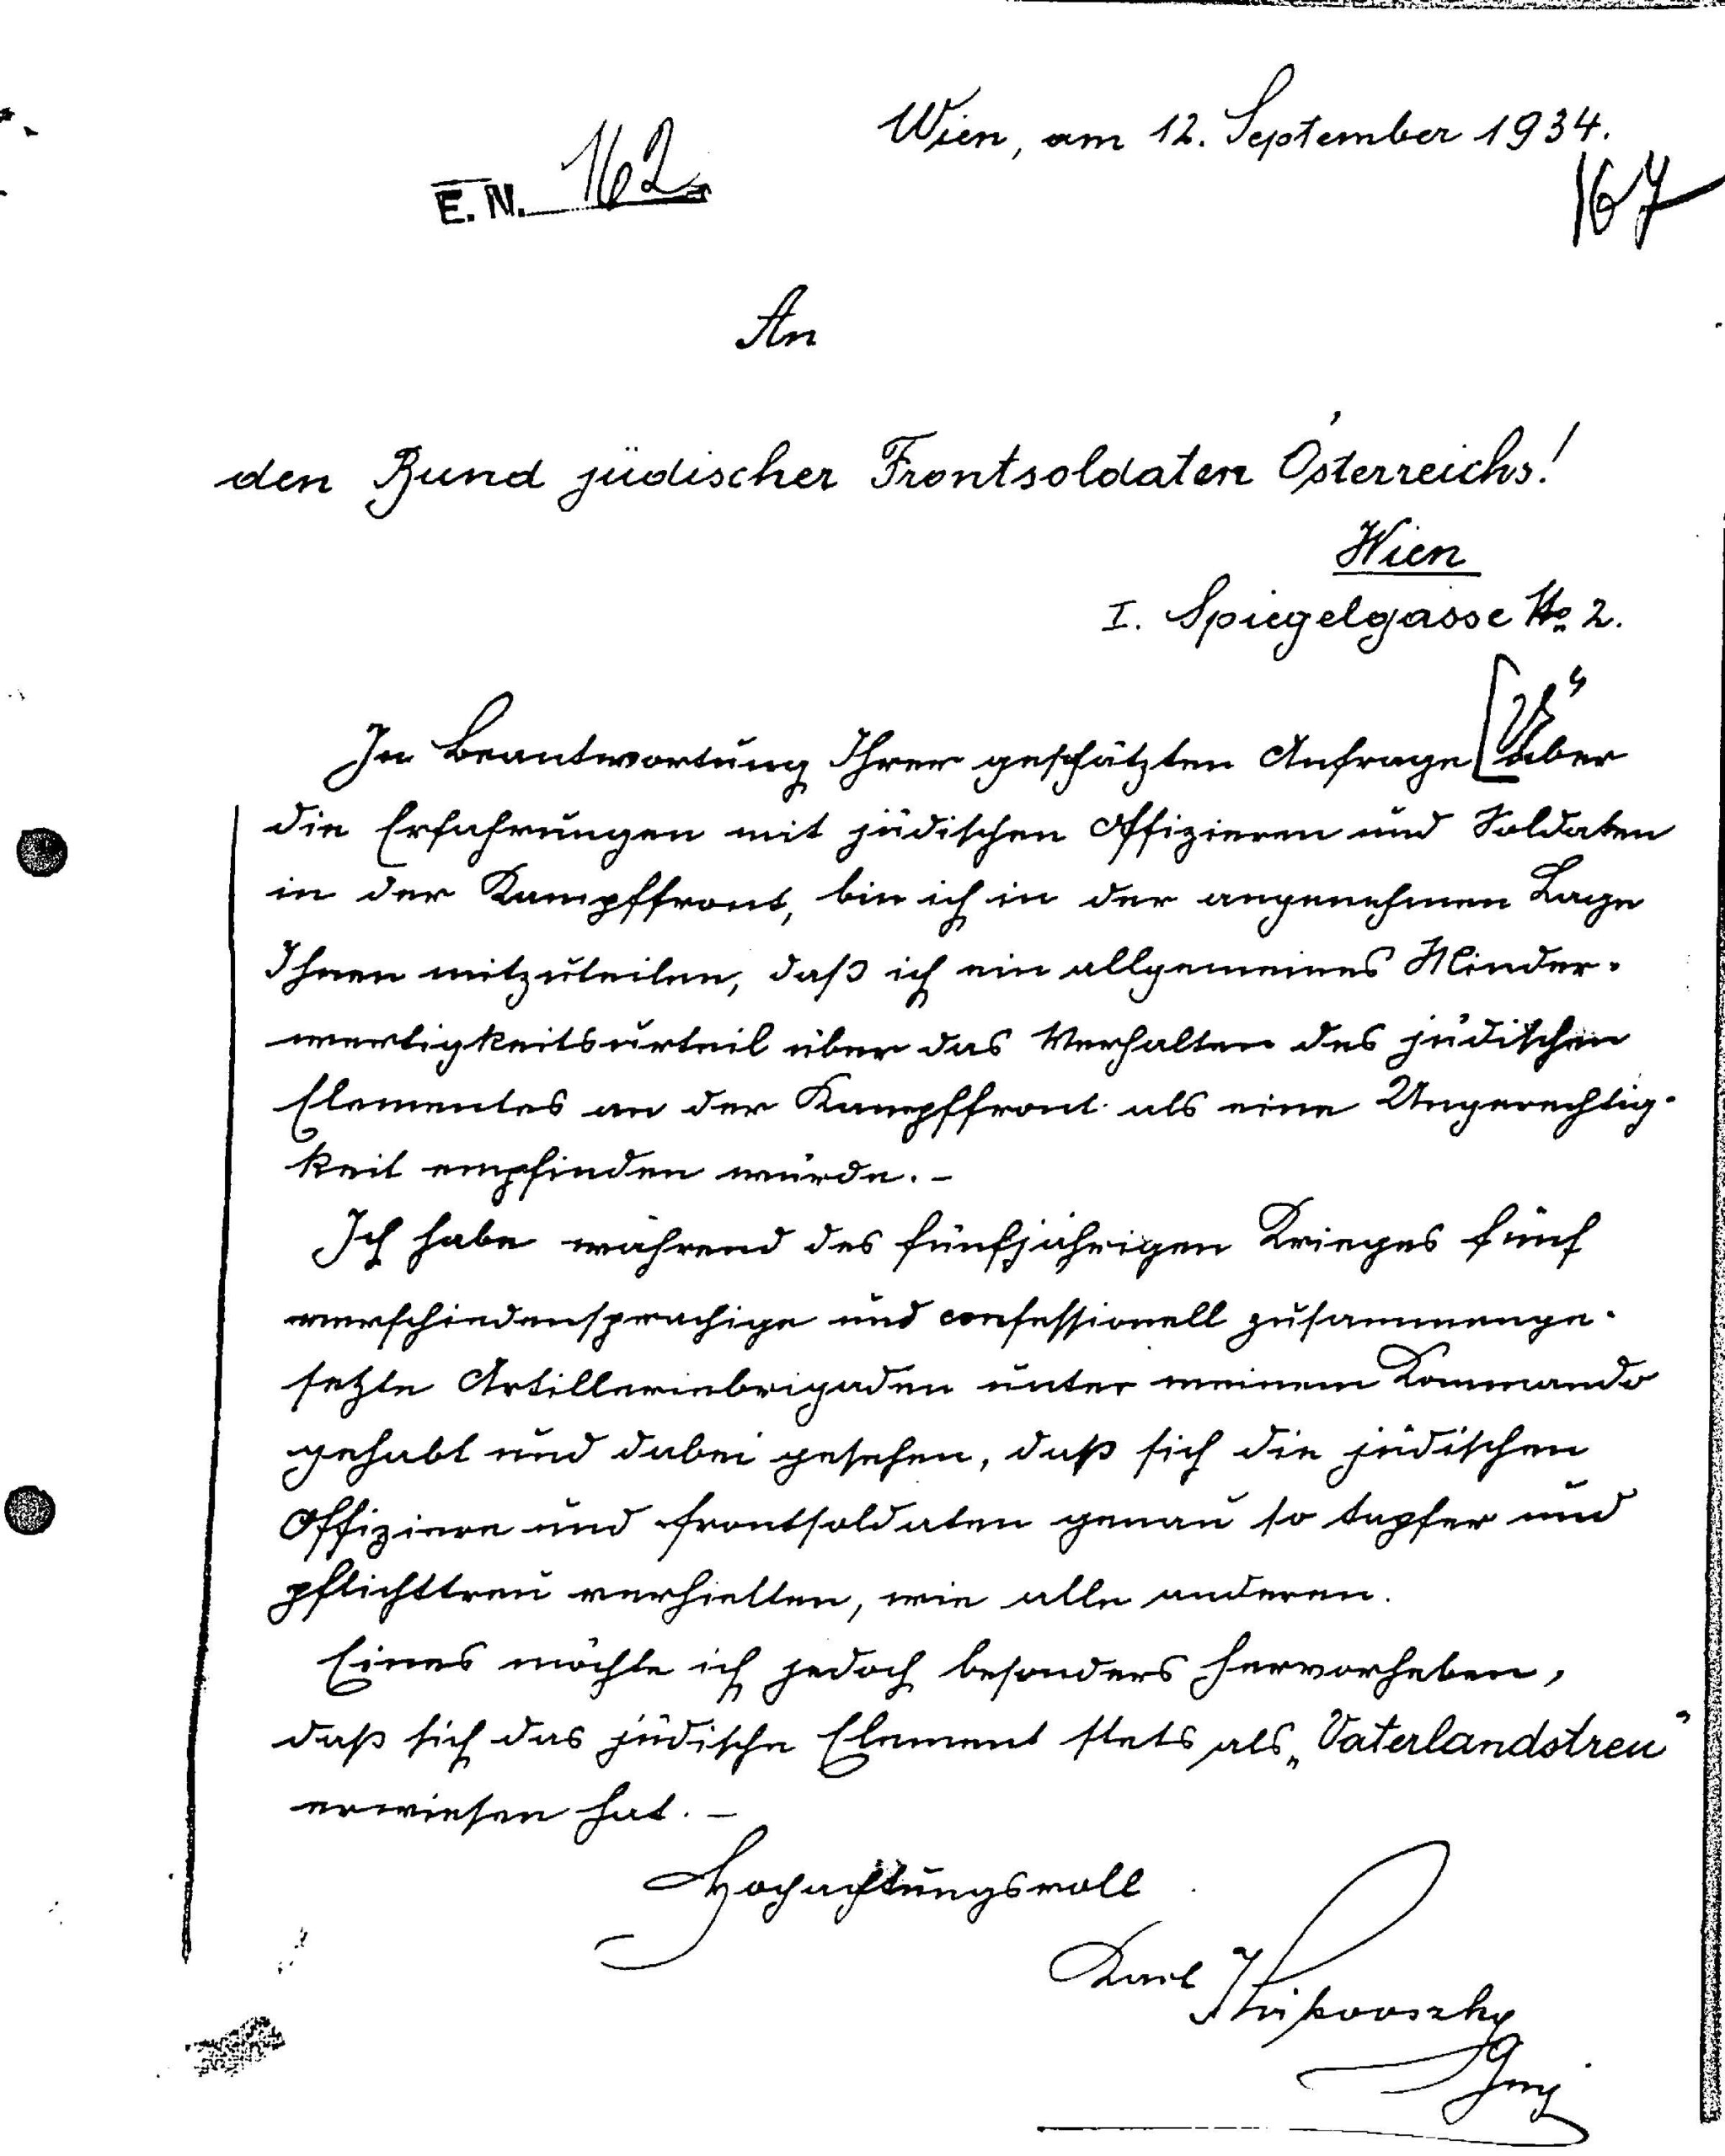 Wien, am 12. September 1934.
E. N. 162
167
An
den Bund jüdischer Frontsoldaten Österreichs!
Wien
I. Spiegelgasse No 2.
In Beantwortung Ihrer geschätzten Anfrage über
die Erfahrungen mit jüdischen Offizieren und Soldaten
in der Kampffront, bin ich in der angenehmen Lage
Ihnen mitzuteilen, daß ich ein allgemeines Minder-
wertigkeitsurteil über das Verhalten des jüdischen
Elementes an der Kampffront als eine Ungerechtig-
keit empfinden würde. –
Ich habe während des fünfjährigen Krieges fünf
verschiedensprachige und confessionell zusammenge-
setzte Artilleriebrigaden unter meinem Kommando
gehabt und dabei gesehen, daß sich die jüdischen
Offiziere und Frontsoldaten genau so tapfer und
pflichttreu verhielten, wie alle anderen.
Eines möchte ich jedoch besonders hervorheben,
daß sich das jüdische Element stets als „Vaterlandstreu"
erwiesen hat. –
Hochachtungsvoll
Karl